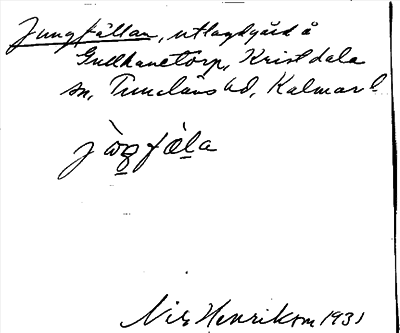 Jungfällan, utlagdgärd å
Gullhanetorp, Kristdala
sn, Tunaläns hd, Kalmar l.
Nils Henrikson 1931